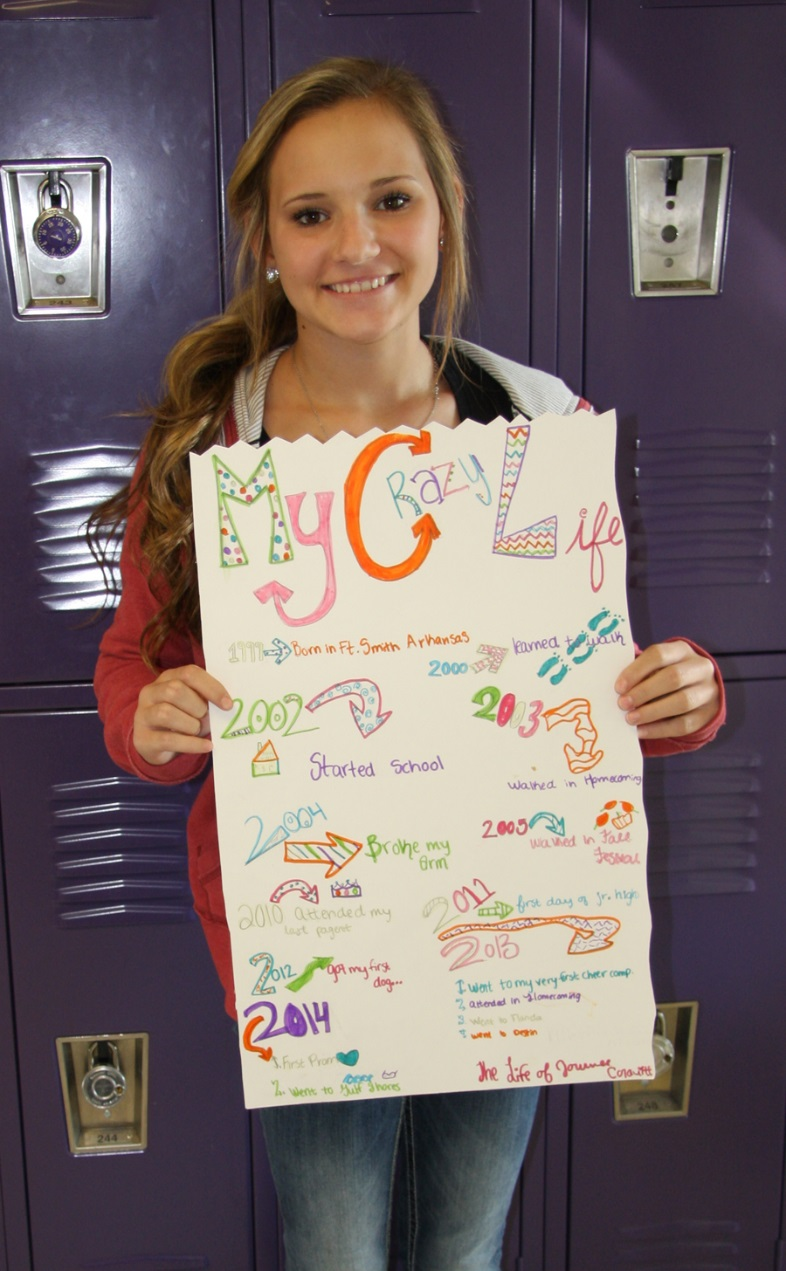 My Crazy Life
1999 Born in Ft. Smith Arkansas
2000 learned to walk
2002
Started School
2003
Walked in Homecoming
2004 Broke my arm
2005 Walked in Fall Festival
2010 Attended my last pagent
2011 first day of jr. high
2012 got my first dog...
2013
1. Went to my very first cheer camp.
2. attended in Homecoming
3. Went to Florida
4. went to Destin
2014
1. First Prom
2. Went to Gulf Shores
The Life of
244